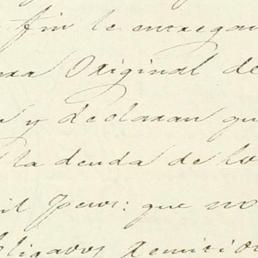 fin le entregan
Original de
y declaran qu
la deuda de lo
mil pesos: que no
bligados remision